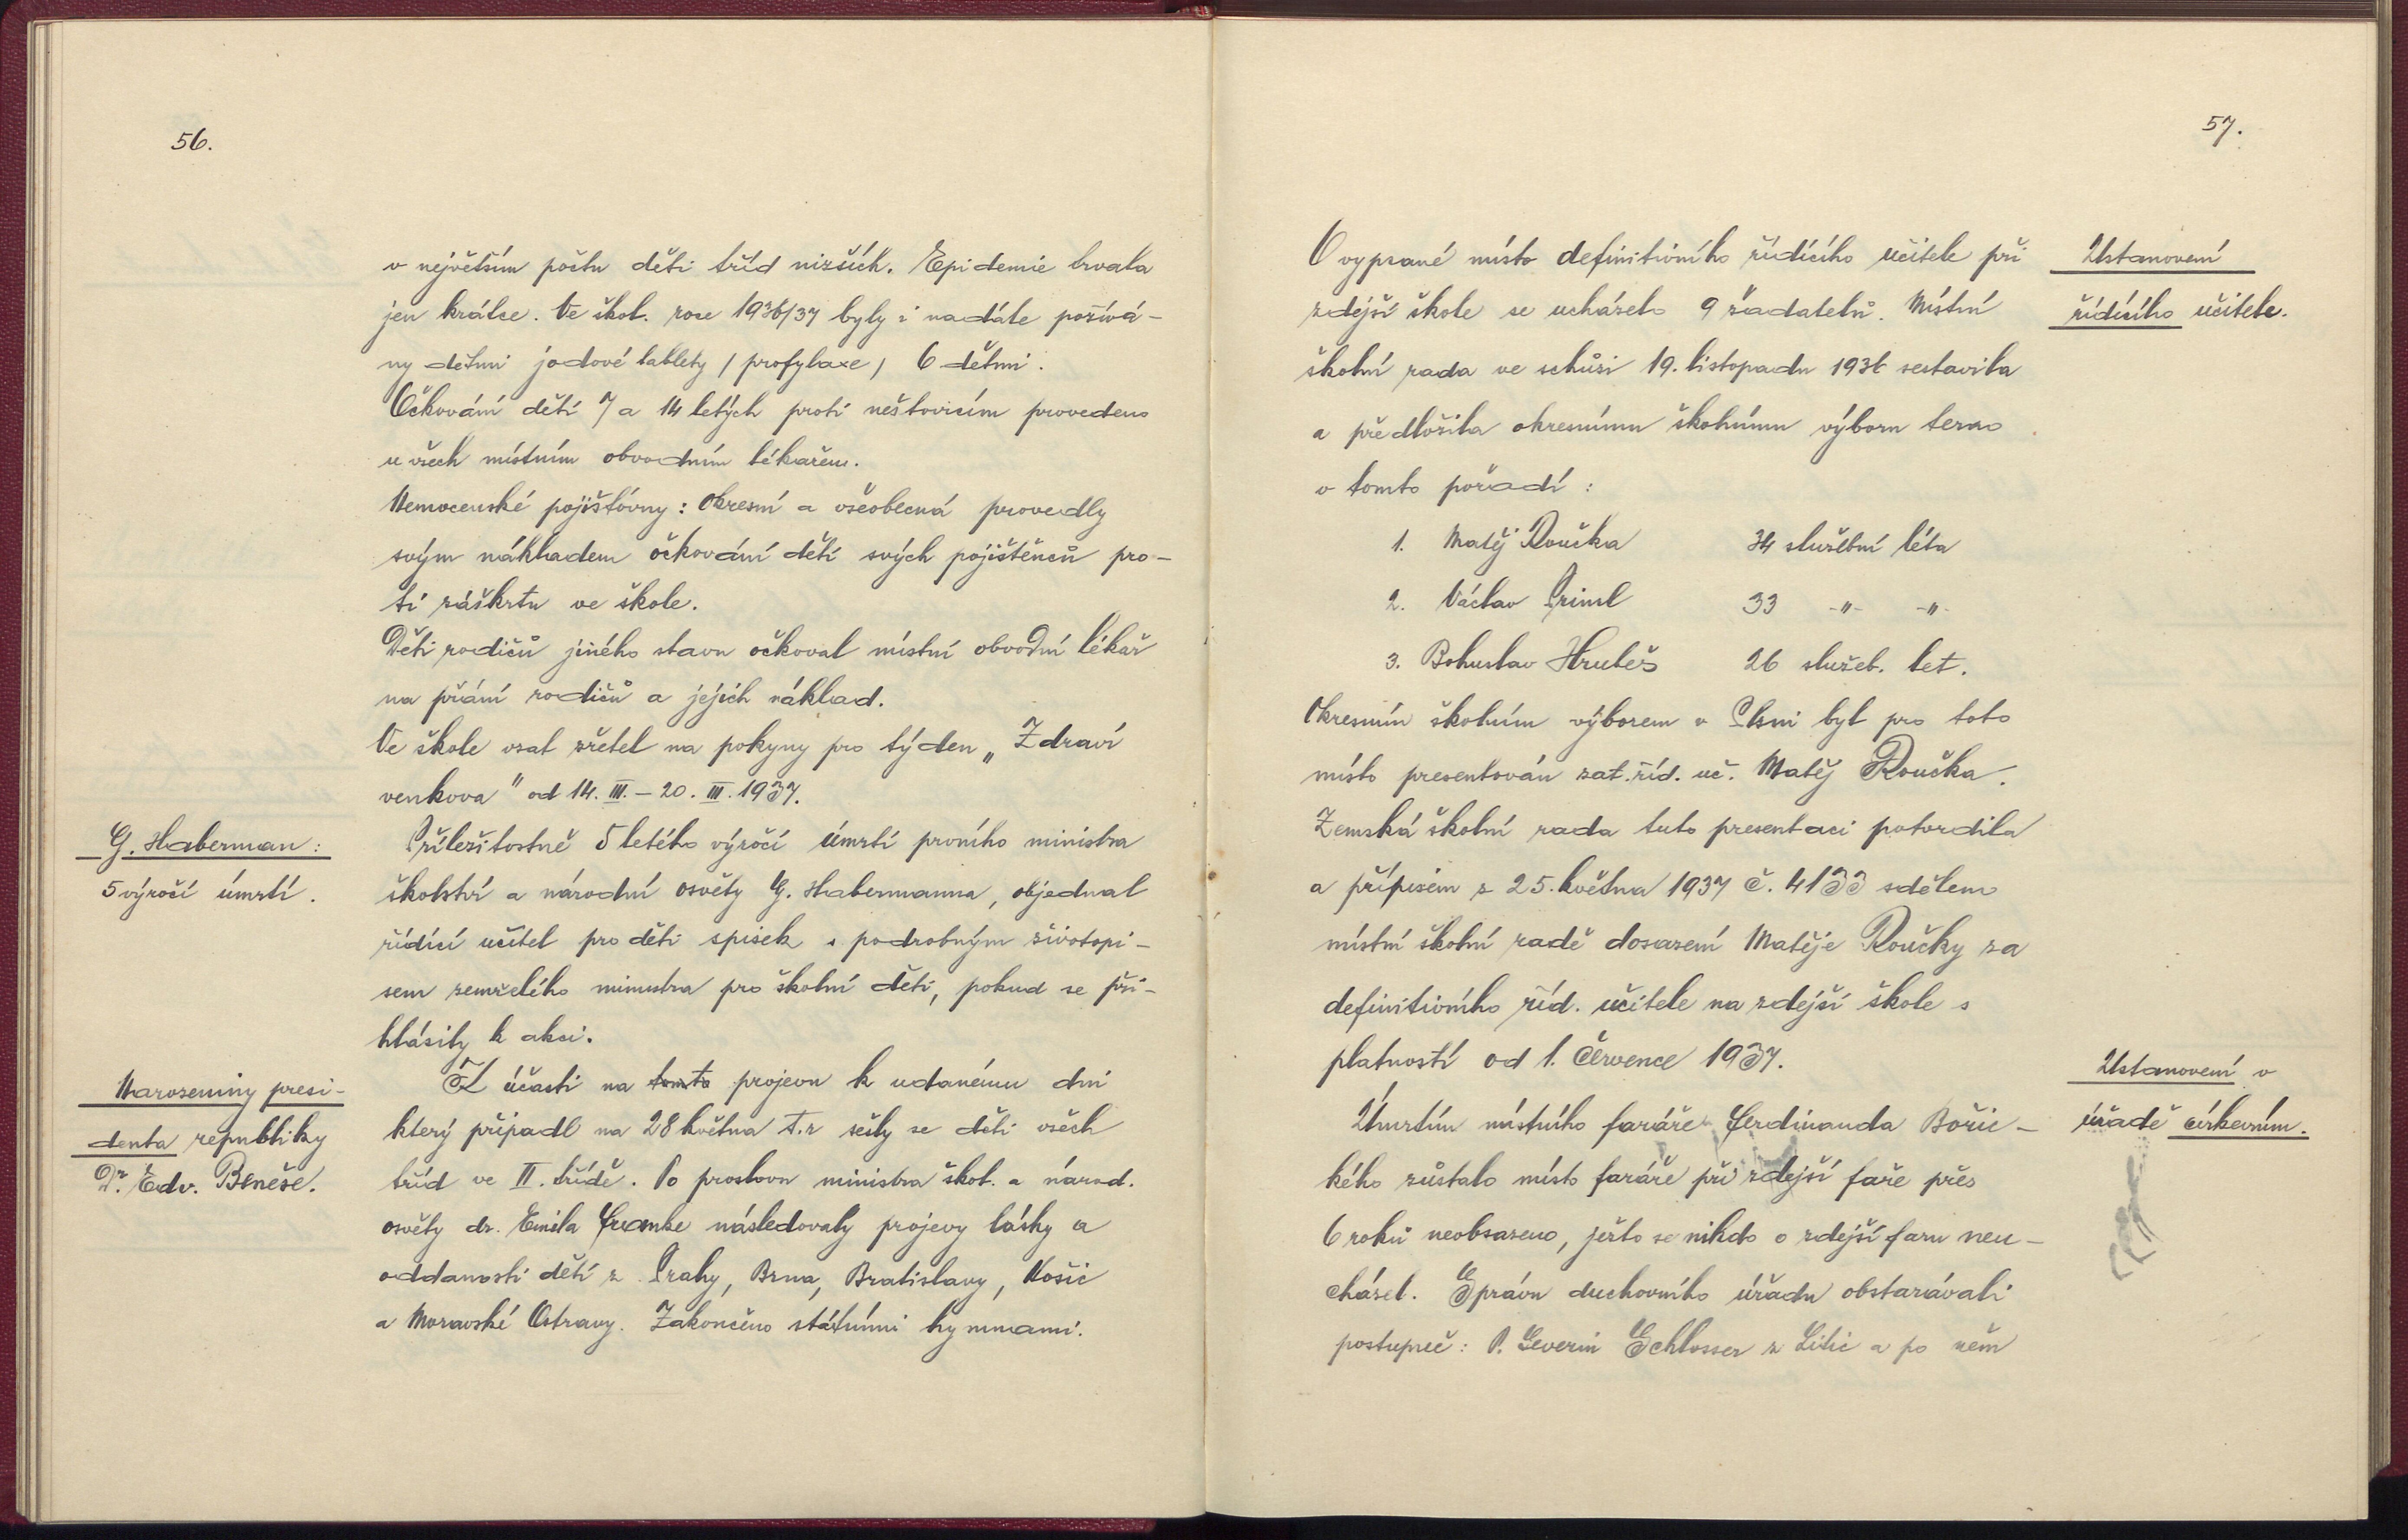 56.
v největším počtu děti tříd nižších. Epidemie trvala
jen krátce. Ve škol. roce 1936/37 byly i nadále požívá-
ny dětmi jodové tablety / profylaxe / 6 dětmi.
Očkování dětí 7 a 14 letých proti neštovicím provedeno
u všech místním obvodním lékařem.
Nemocenské pojišťovny: Okresní a všeobecná provedly
svým nákladem očkování dětí svých pojištěnců pro-
ti záškrtu ve škole.
Děti rodičů jiného stavu očkoval místní obvodní lékař
na přání rodičů a jejich náklad.
Ve škole vzat zřetel na pokyny pro týden „Zdraví
venkova" od 14. III. – 20. III. 1937.
G. Haberman:
5 výročí úmrtí.
Příležitostně 5 letého výročí úmrtí prvního ministra
školství a národní osvěty G. Habermanna, objednal
řídící učitel pro děti spisek s podrobným životopi-
sem zemřelého ministra pro školní děti, pokud se při-
hlásily k akci.
Narozeniny presi-
denta republiky
Dr. Edv. Beneše.
K účasti na tomto projevu k udanému dni
který připadl na 28 května t.r sešly se děti všech
tříd ve II. třídě. Po proslovu ministra škol. a národ.
osvěty dr. Emila Franke následovaly projevy lásky a
oddanosti dětí z Prahy, Brna, Bratislavy, Košic
a Moravské Ostravy. Zakončeno státními hymnami.
57.
Ustanovení
řídícího učitele.
O vypsané místo definitivního řídícího učitele při
zdejší škole se ucházelo 9 žadatelů. Místní
školní rada ve schůzi 19. listopadu 1936 sestavila
a předložila okresnímu školnímu výboru terno
v tomto pořadí:
1. Matěj Roučka 34 služební léta
2. Václav Priml 33 -„- -„-
3. Bohuslav Hrubeš 26 služeb. let.
Okresním školním výborem v Plzni byl pro toto
místo presentován zat. říd. uč. Matěj Roučka.
Zemská školní rada tuto presentaci potvrdila
a přípisem z 25. května 1937 č. 4133 sděleno
místní školní radě dosazení Matěje Roučky za
definitivního říd. učitele na zdejší škole s
platností od 1. července 1937.
Ustanovení v
úřadě církevním.
Úmrtím místního faráře Ferdinanda Bořic-
kého zůstalo místo faráře při zdejší faře přes
6 roků neobsazeno, ježto se nikdo o zdejší faru neu-
cházel. Správu duchovního úřadu obstarávali
postupně: P. Severin Schlosser z Litic a po něm